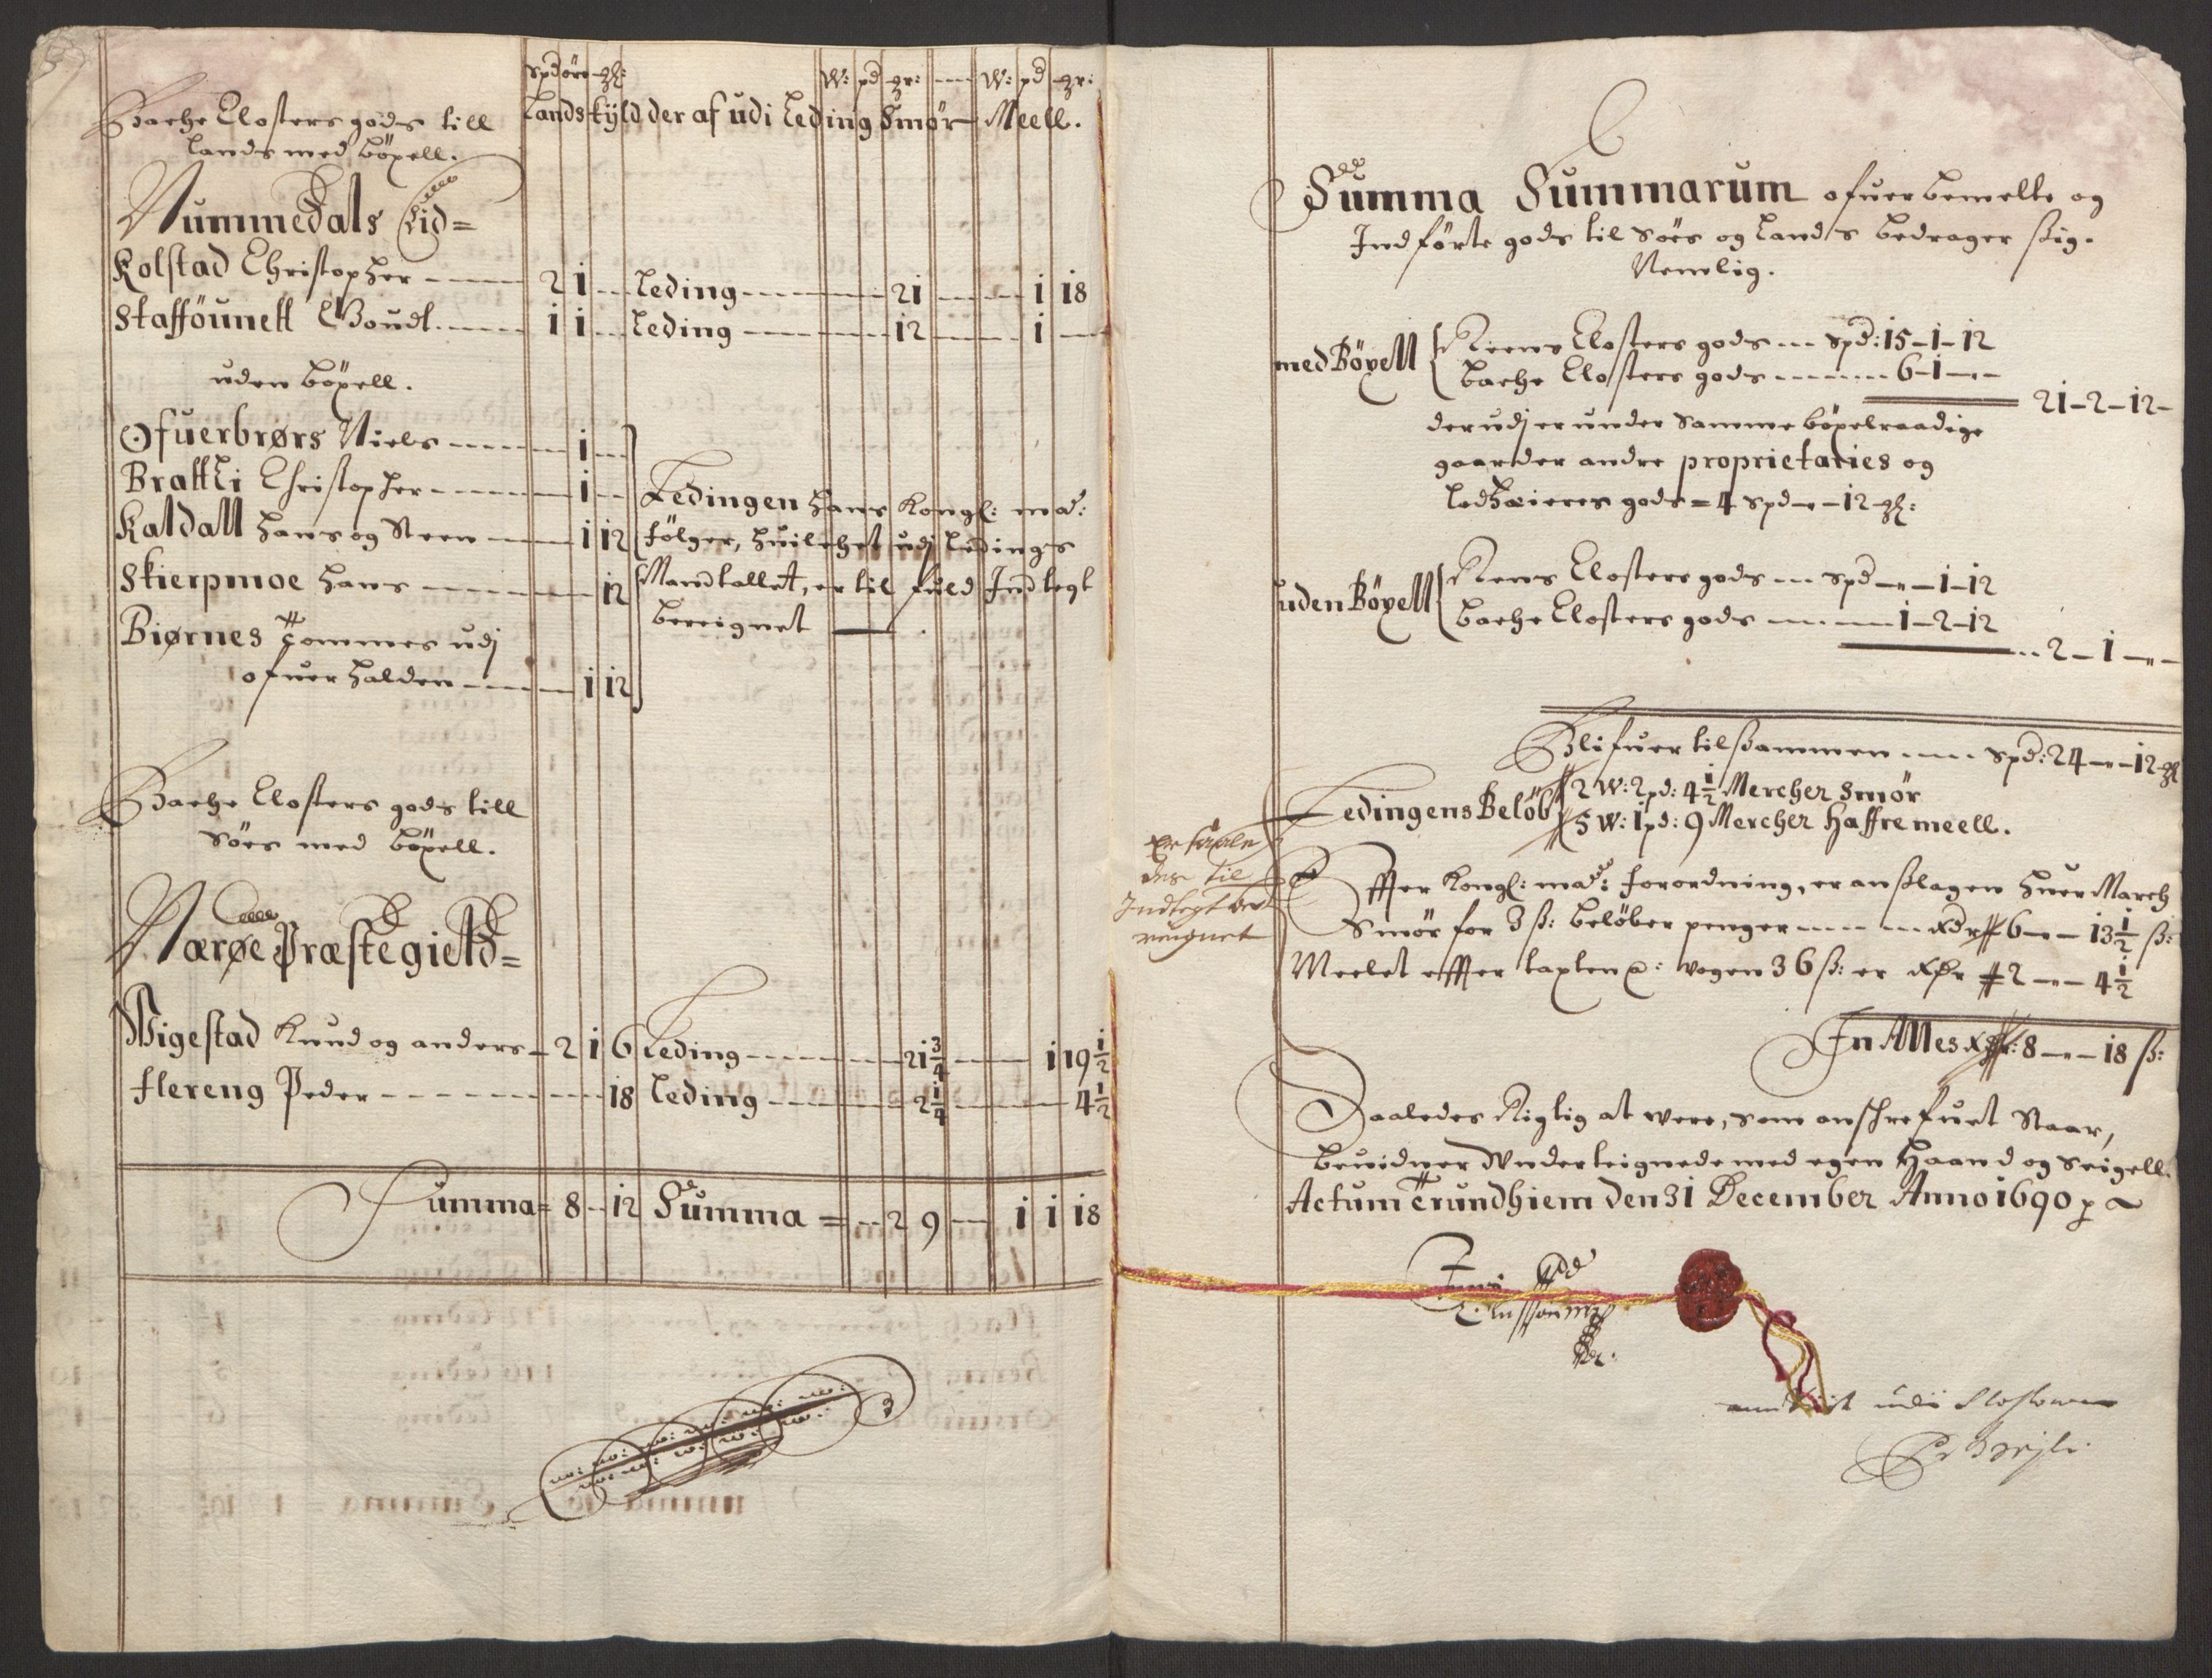 Spd öre gl:
W: pd gr: W: pd gr:
Bache Closters gods till
Landskÿld der af udi Leding Smør Meell.
Lands med böxell.
Nummedals Lid=
Kolstad Christopher 2 1 Leding 21 1 18
Stafföunett 1 1 Leding 12 1
uden böxell.
Ofuerbrørs Niels 1
Brattli Christopher 1
Kaldall Hans og Steen 1 12
Skierpmoe Hans 12
Biørnes Tommes udj
ofuerhalden 1 12
Ledingen Hans Kongl: maÿ:
følger, huilchet udj Ledings
Mandtallet, er til fuld Indtegt
bereignet
Bache Closters gods till
Söes med böxell.
Nærøe Præstegield=
Wigestad Knud og anders 2 1 6 Leding 21 3/4 1 19 1/2
Flereng Peder 18 Leding 2 1/4 4 1/2
Summa= 8 12 Summa = 2 9 1 1 18
Summa Summarum ofuerbemelte og
Indførte gods til Söes og Lands bedrager sig.
Nemlig.
med Böxell Reens Closters gods spd: 15-1-12
Bache Closters gods 6-1-"-
21-2-12-
der udj er under samme böxelraadige
gaarder andre proprietaries og
Lodhæieres gods = 4 spd-"-12 gl:
uden Böxell Reens Closters gods spd-"-1-12
Bache Closters gods 1-2-12
2-1-"-
Blifuer tilsammen spd: 24-"-12 gl
Ledingens Belöb 2 W: 2 pd: 4 1/2 Mercher Smör
5 W: 1 pd: 9 Mercher Haffremeell.
Er saale
des til
Indtegt be
reignet
Effter Kongl: maÿ: forordning, er anslagen huer March
Smör for 3 ß: belöber penger Rdr 6-"-13 1/2 ß:
Meelet effter taxten a: wogen 36 ß: er Rdr 2-"-4 1/2
In Alles Rdr: 8-"-18 ß:
Saaledes Rigtig at were, som anschrefuet Staar,
beuidner Underteignede med egen Haand og Seigell.
Actum Trundhiem den 31 December Anno 1690